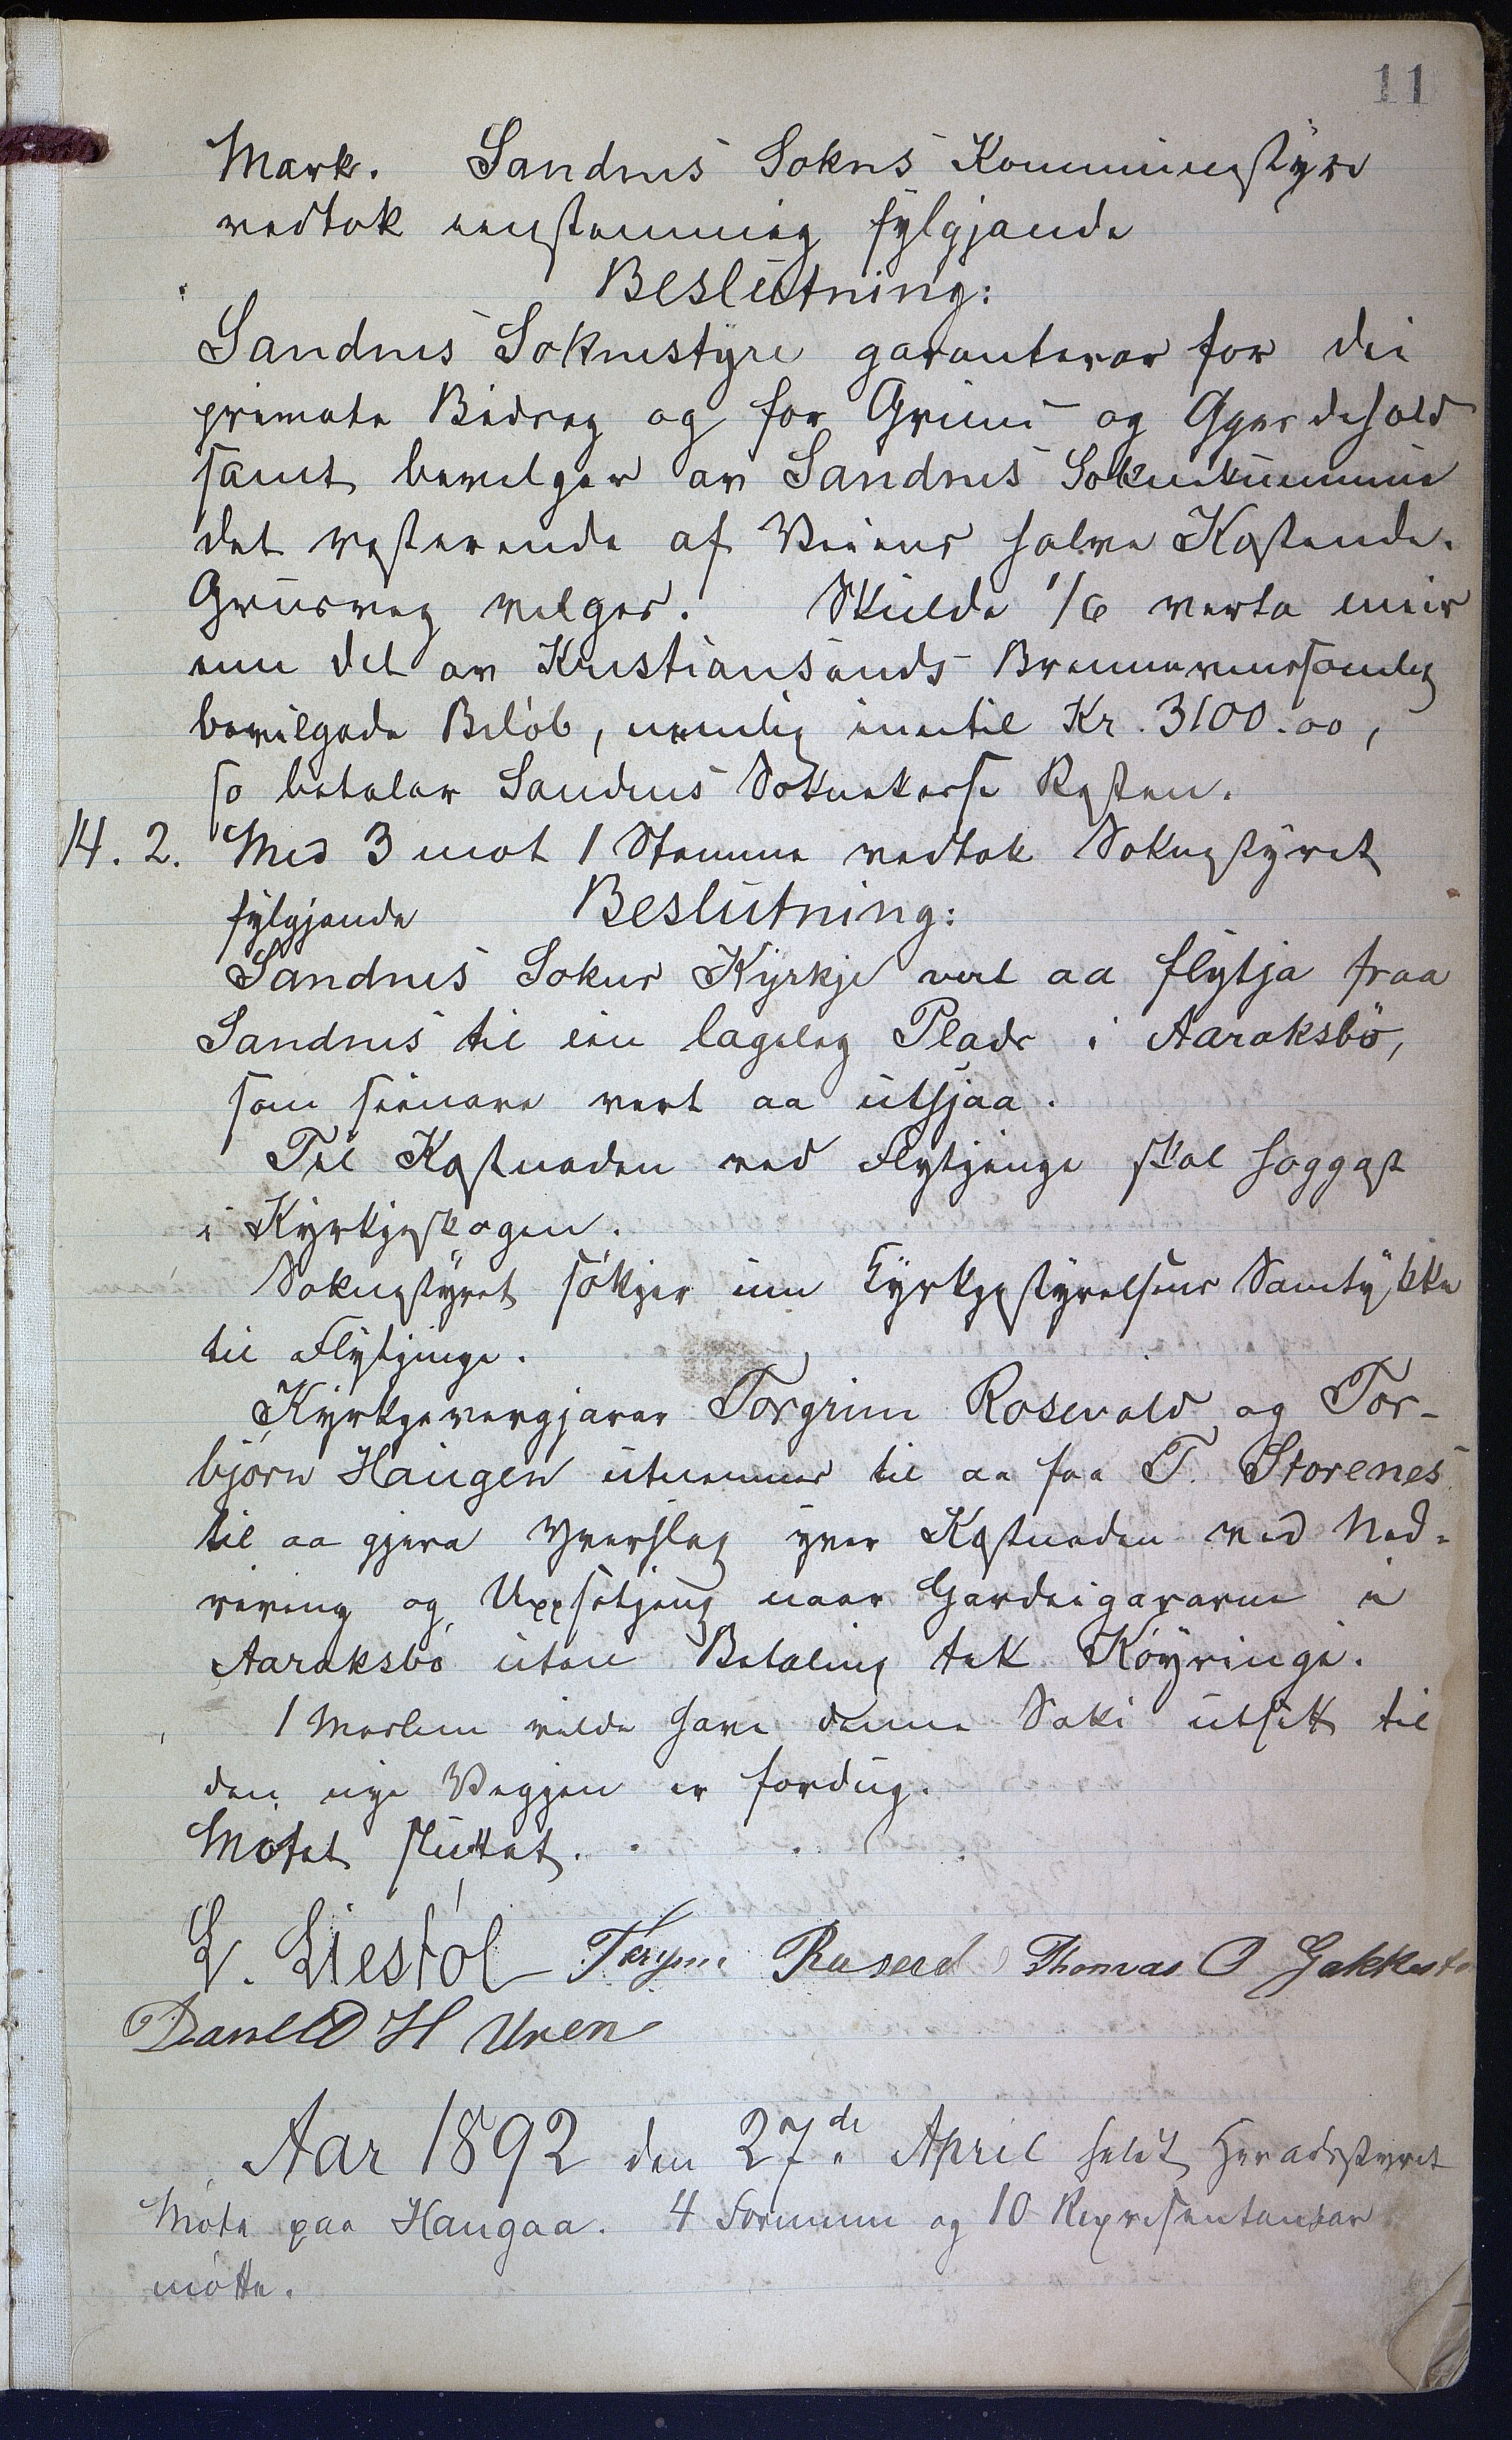 11
Mark. Sandnes Sokns Kommunestyre
vedtok einstemmig fylgjande
Beslutning:
Sandnes Soknestyre garanterar for dei
private Bidrag og for Grunn og Gjerdehald
samt bevilger av Sandnes Soknekommune
det resterande af Veiens halve Kostende.
Grusveg velges. Skulde 1/6 verta meir
enn det av Kristiansands Brennevinssamlag
bevilgade Beløb, nemlig inntil Kr. 3100.00,
so betalar Sandnes Soknekasse Resten.
14. 2. Med 3 mot 1 Stemme vedtok Soknestyret
fylgjande Beslutning:
Sandnes Sokns Kyrkje vert aa flytja fraa
Sandnes til ein lageleg Plads i Aaraksbø,
som seinare vert aa utsjaa.
Til Kostnaden ved Flytjinge skal hoggast
i Kyrkjeskogen.
Soknestyret søkjer um Kyrkjestyrelsens Samtykke
til Flytjinge.
Kyrkjevergjarar Torgrim Rosevald og Tor-
bjørn Haugen utnemner til aa faa T. Storenes
til aa gjera Yverslag yver Kostnaden ved Ned-
riving og Uppsetjing naar Gardeigararne i
Aaraksbø utan Betaling tek Køyringi.
1 Medlem vilde hava denne Saki utsett til
den nye Vegjen er ferdug.
Møtet sluttat.
L. Liestøl Torgrim Rusevd Thomas O
Daniel H Uven
Aar 1892 den 27de April heldt Heradsstyret
Møte paa Haugaa. 4 Formenn og 10 Representantar
møtte.